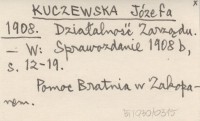 KUCZEWSKA Józefa
1908. Działalność Zarządu.
- W: Sprawozdanie 1908 b,
s. 12-19.
Pomoc Bratnia w Zakopa-
nem.